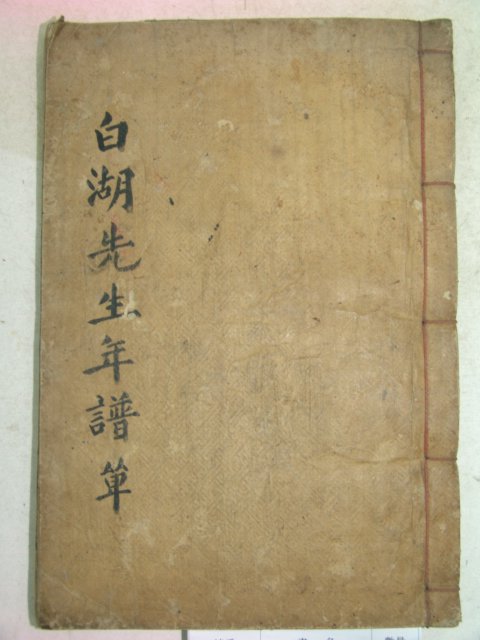 白湖先生年譜単